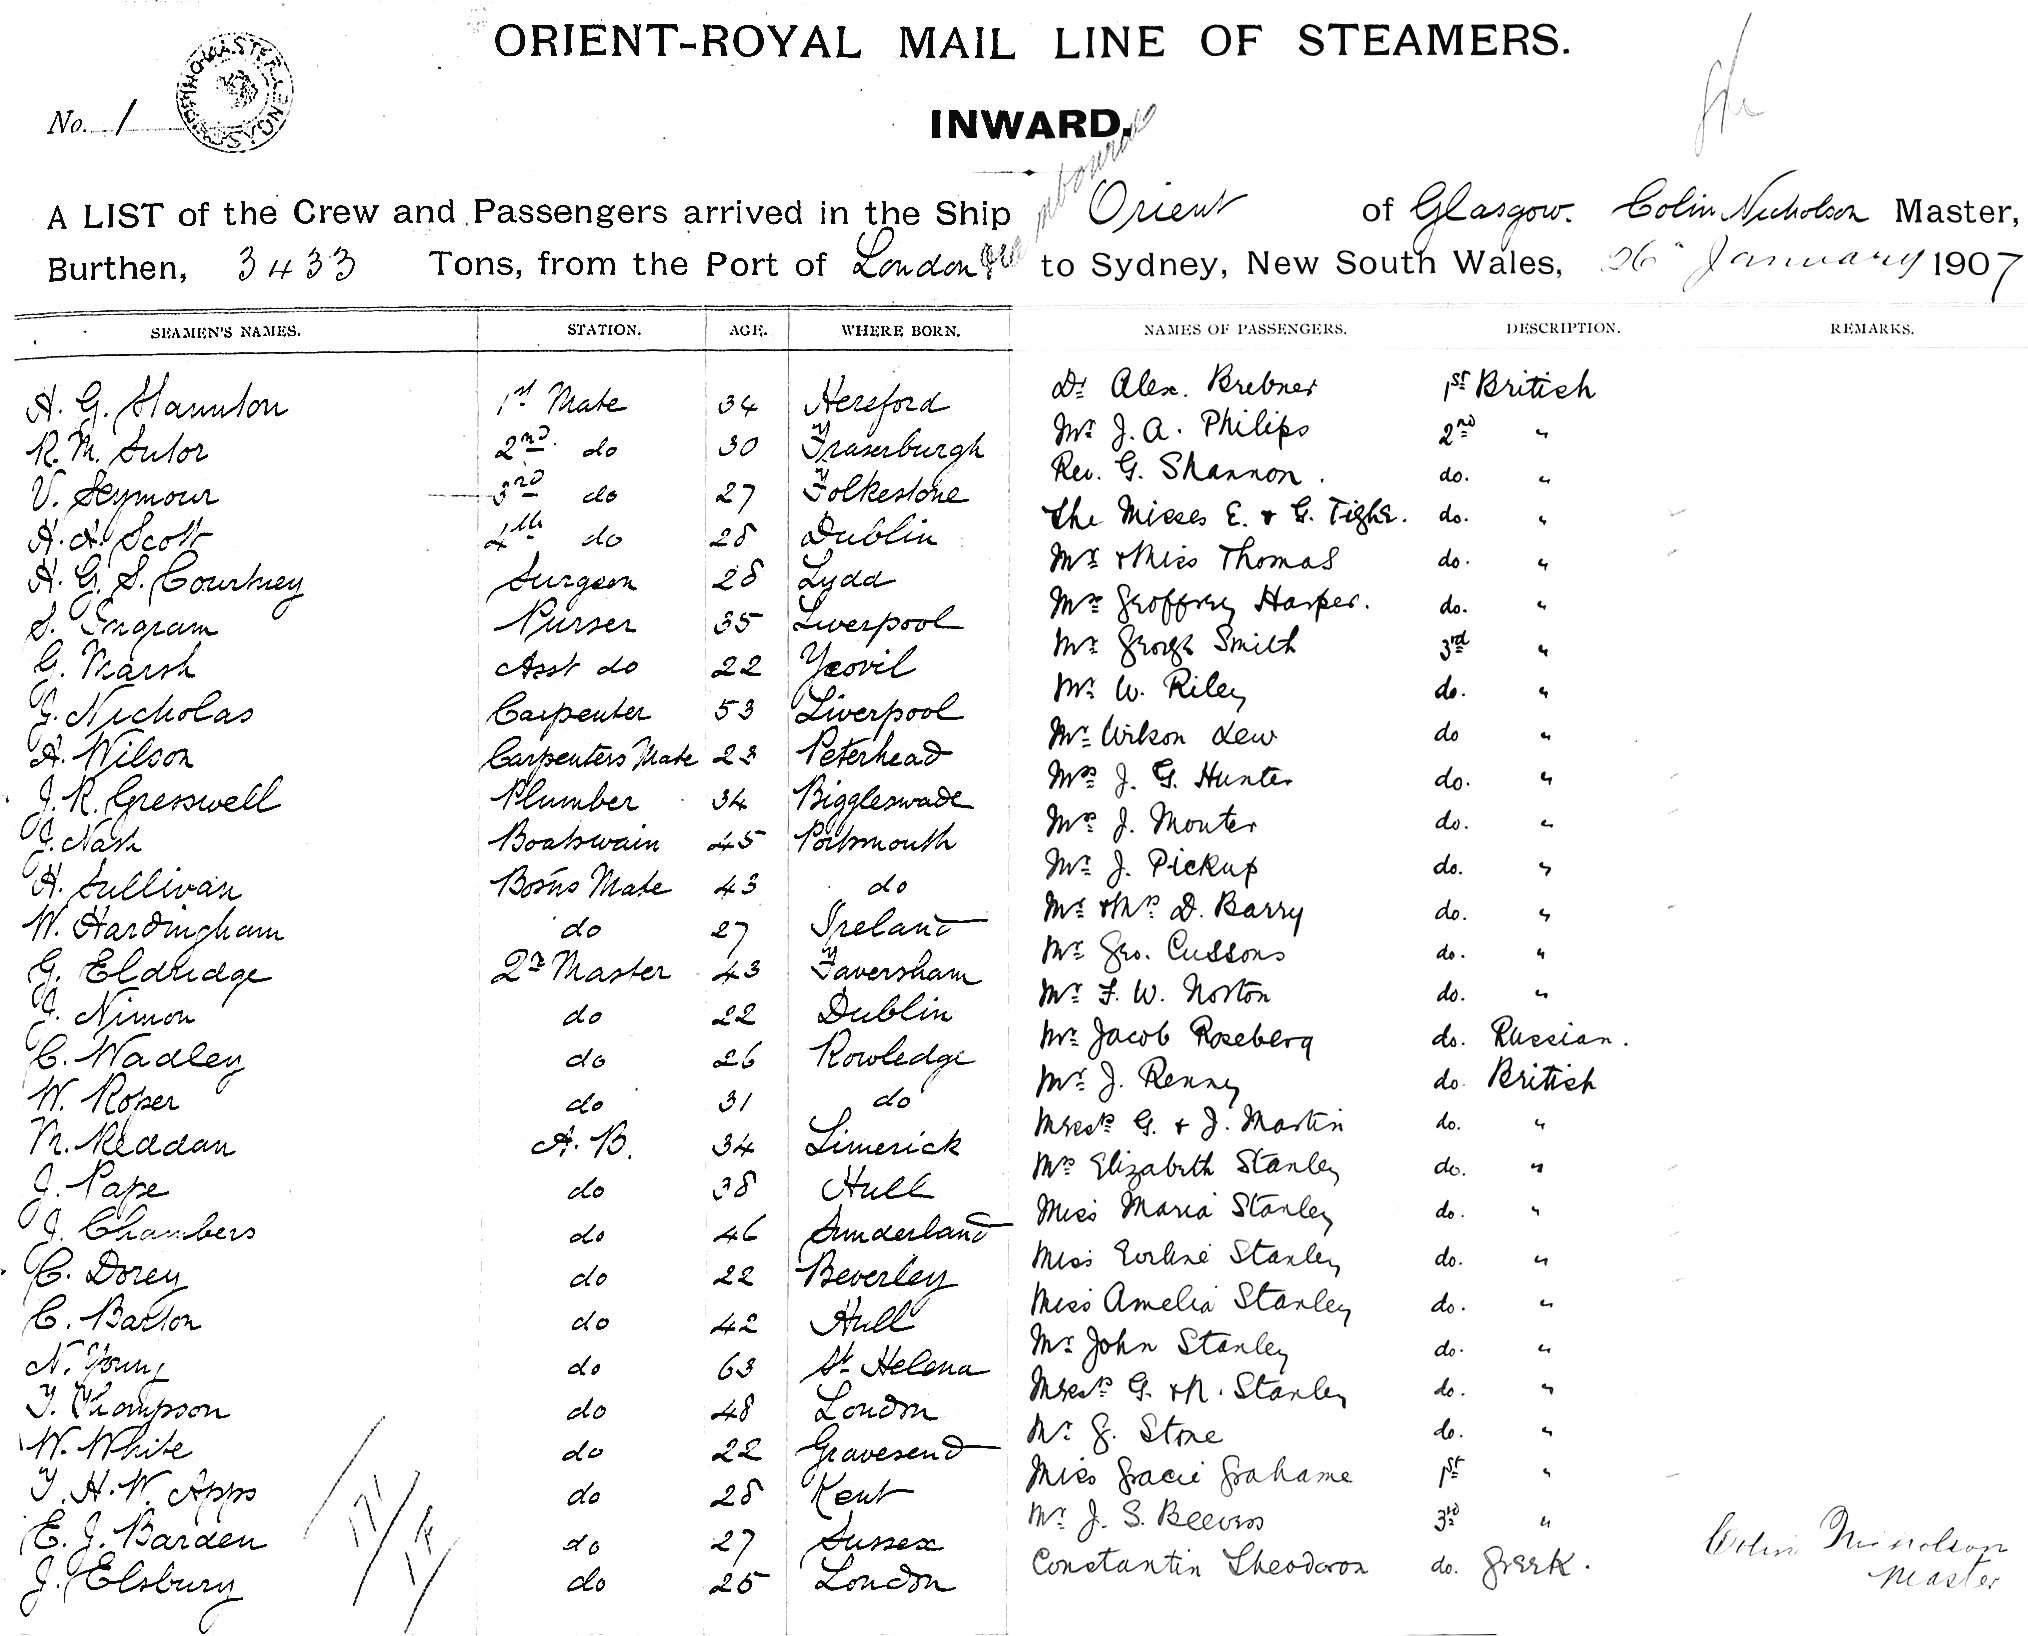 ORIENT-ROYAL MAIL LINE OF STEAMERS.
No. 1
INWARD.
A LIST of the Crew and Passengers arrived in the Ship Orient of Glasgow. Colin Nicholson Master,
Burthen, 3433 Tons, from the Port of London to Sydney, New South Wales, 26 January 1907
SEAMEN'S NAMES. STATION. AGE. WHERE BORN. NAMES OF PASSENGERS. DESCRIPTION. REMARKS.
H. G. Staunton 1st Mate 34 Hereford Dr Alex. Brebner 1st British
R. M. Sutor 2nd do 30 Fraserburgh Mr J. A. Philips 2nd "
V. Seymour 3rd do 27 Folkestone Rev. G. Shannon. do. "
H. H. Scott 4th do 28 Dublin The Misses E. & G. Tighe. do. "
H. G. S. Courtney Surgeon 28 Lydd Mr & Miss Thomas do. "
S. Ingram Purser 35 Liverpool Mr Geoffrey Harper. do. "
G. Marsh Asst do 22 Yeovil Mr George Smith 3rd "
J. Nicholas Carpenter 53 Liverpool Mr W. Riley do. "
A. Wilson Carpenters Mate 23 Peterhead Mr Wilson Lew do "
J. R. Gresswell Plumber 34 Biggleswade Mrs J. G. Hunter do. "
J. Nash Boatswain 45 Portsmouth Mrs J. Monter do. "
H. Sullivan Bosns Mate 43 do Mr J. Pickup do. "
W. Hardingham do 27 Ireland Mr & Mrs D. Barry do. "
G. Eldridge 2r Master 43 Faversham Mr Geo. Cussons do. "
J. Nimon do 22 Dublin Mr F. W. Norton do. "
C. Wadley do 26 Rowledge Mr Jacob Roseberg do. Russian.
W. Roper do 31 do Mr J. Renny do. British
M. Reddan A. B. 34 Limerick Messrs G. & J. Martin do. "
J. Pape do 38 Hull Mrs Elizabeth Stanley do. "
J. Chambers do 46 Sunderland Miss Maria Stanley do. "
C. Dorey do 22 Beverley Miss Eveline Stanley do. "
C. Barton do 42 Hull Miss Amelia Stanley do. "
N. Young do 63 St Helena Mr John Stanley do. "
T. Thompson do 48 London Messrs G. & N. Stanley do. "
W. White do 22 Gravesend Mr G. Stone do. "
T. H. W. Apps do 28 Kent Miss Gracie Grahame 1st "
E. J. Barden do 27 Sussex Mr J. S. Beevers 3rd "
J. Elsbury do 25 London Constantin Theodoron do. Greek.
Colin Nicholson
Master